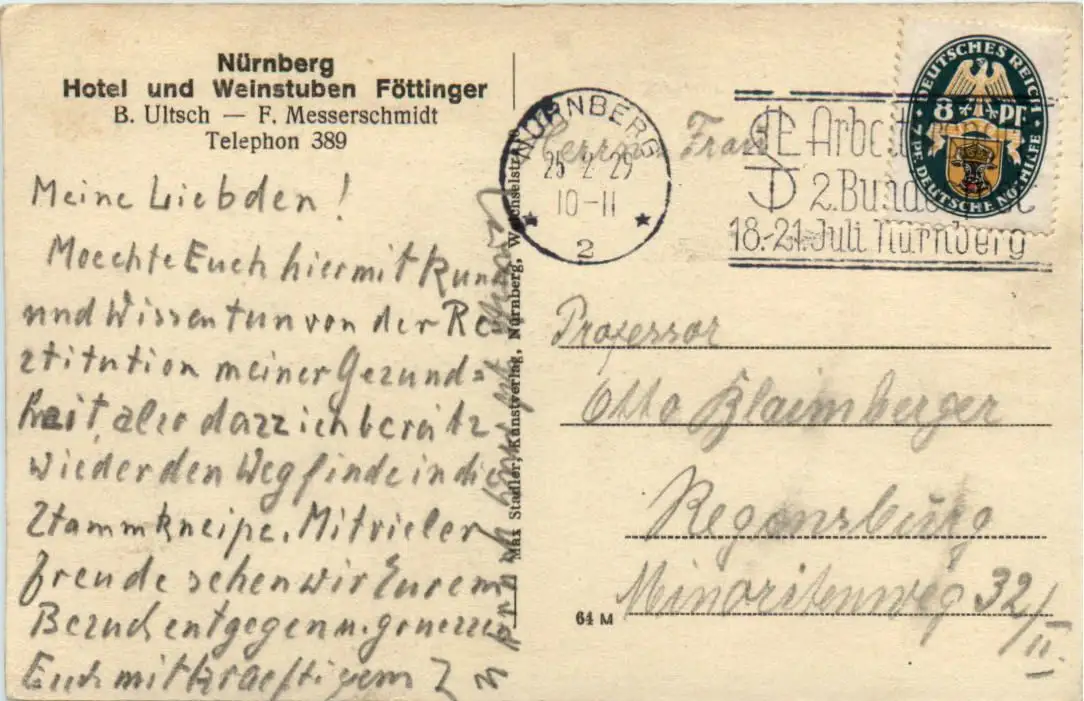 Nürnberg
Hotel und Weinstuben Föttinger
B. Ultsch — F. Messerschmidt
Telephon 389
Meine Liebden!
Moechte Euch hiermit Kund
und Wissen tun von der Re
ztitution meiner Gezund=
heit, also dazz ich bereitz
wieder den Weg finde in die
Ztammkneipe. Mit vieler
freude sehen wir Eurem
Bezuch entgegen u. gruezzen
Euch mit kraeftigem Z
Max Stadler, Kunstverlag, Nürnberg, Wodanselstraße
NÜRNBERG
25 2 29
10-11
2
Arbeit
2. Bundes
18.-21. Juli Nürnberg
DEUTSCHES REICH
8 + 7 PF.
DEUTSCHE NOTHILFE
Herrn Frau
Professor
Otto Blaimberger
Regensburg
Minoritenweg 32/II.
64 M